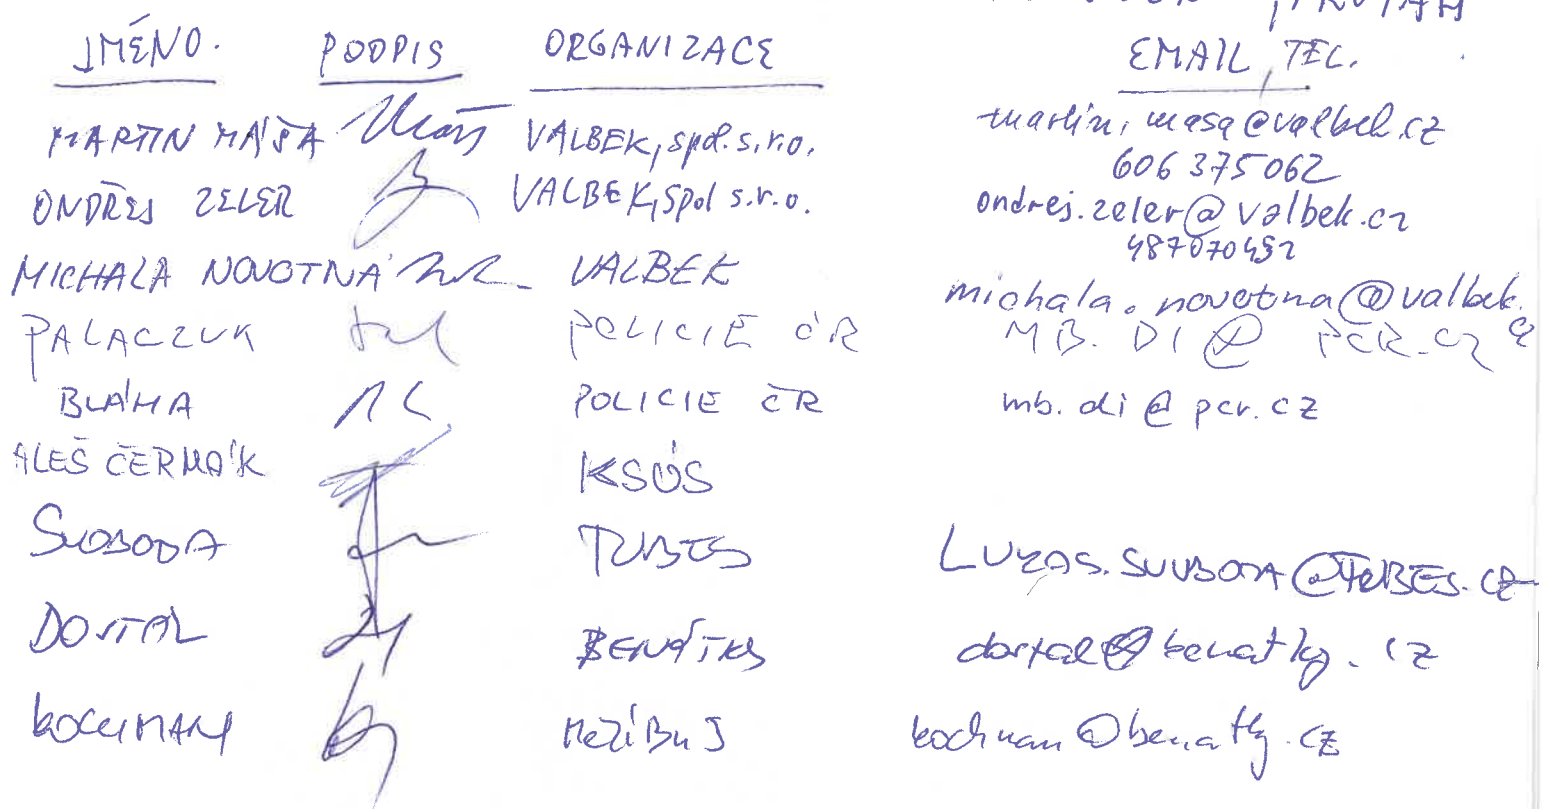 JMÉNO. PODPIS ORGANIZACE EMAIL, TEL.
MARTIN MÁŠA VALBEK, spol. s.r.o. martin.masa@valbek.cz
606 375 062
ONDŘEJ ZELER VALBEK, spol s.r.o. ondrej.zeler@valbek.cz
487070452
MICHALA NOVOTNÁ VALBEK michala.novotna@valbek.cz
PALACZUK POLICIE ČR MB.DI@PCR.CZ
BLÁHA POLICIE ČR mb.di@pcr.cz
ALEŠ ČERMÁK KSÚS
SVOBODA TUBES LUKAS.SVOBODA@TUBES.CZ
DOSTÁL BENÁTKY dostal@benatky.cz
KOCHMAN kochman@benatky.cz